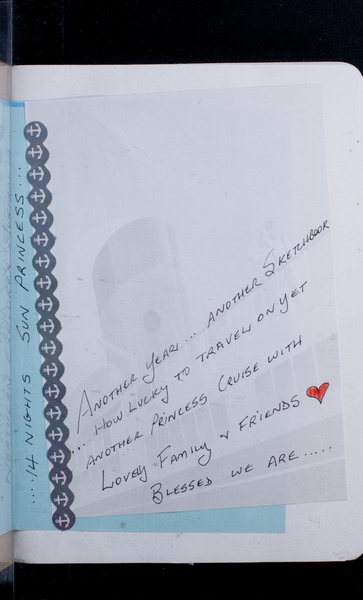 ....14 NIGHTS SUN PRINCESS...
ANOTHER YEAR ... ANOTHER SKETCHBOOK
... HOW LUCKY TO TRAVEL ON YET
ANOTHER PRINCESS CRUISE WITH
LOVELY FAMILY & FRIENDS
BLESSED WE ARE .....